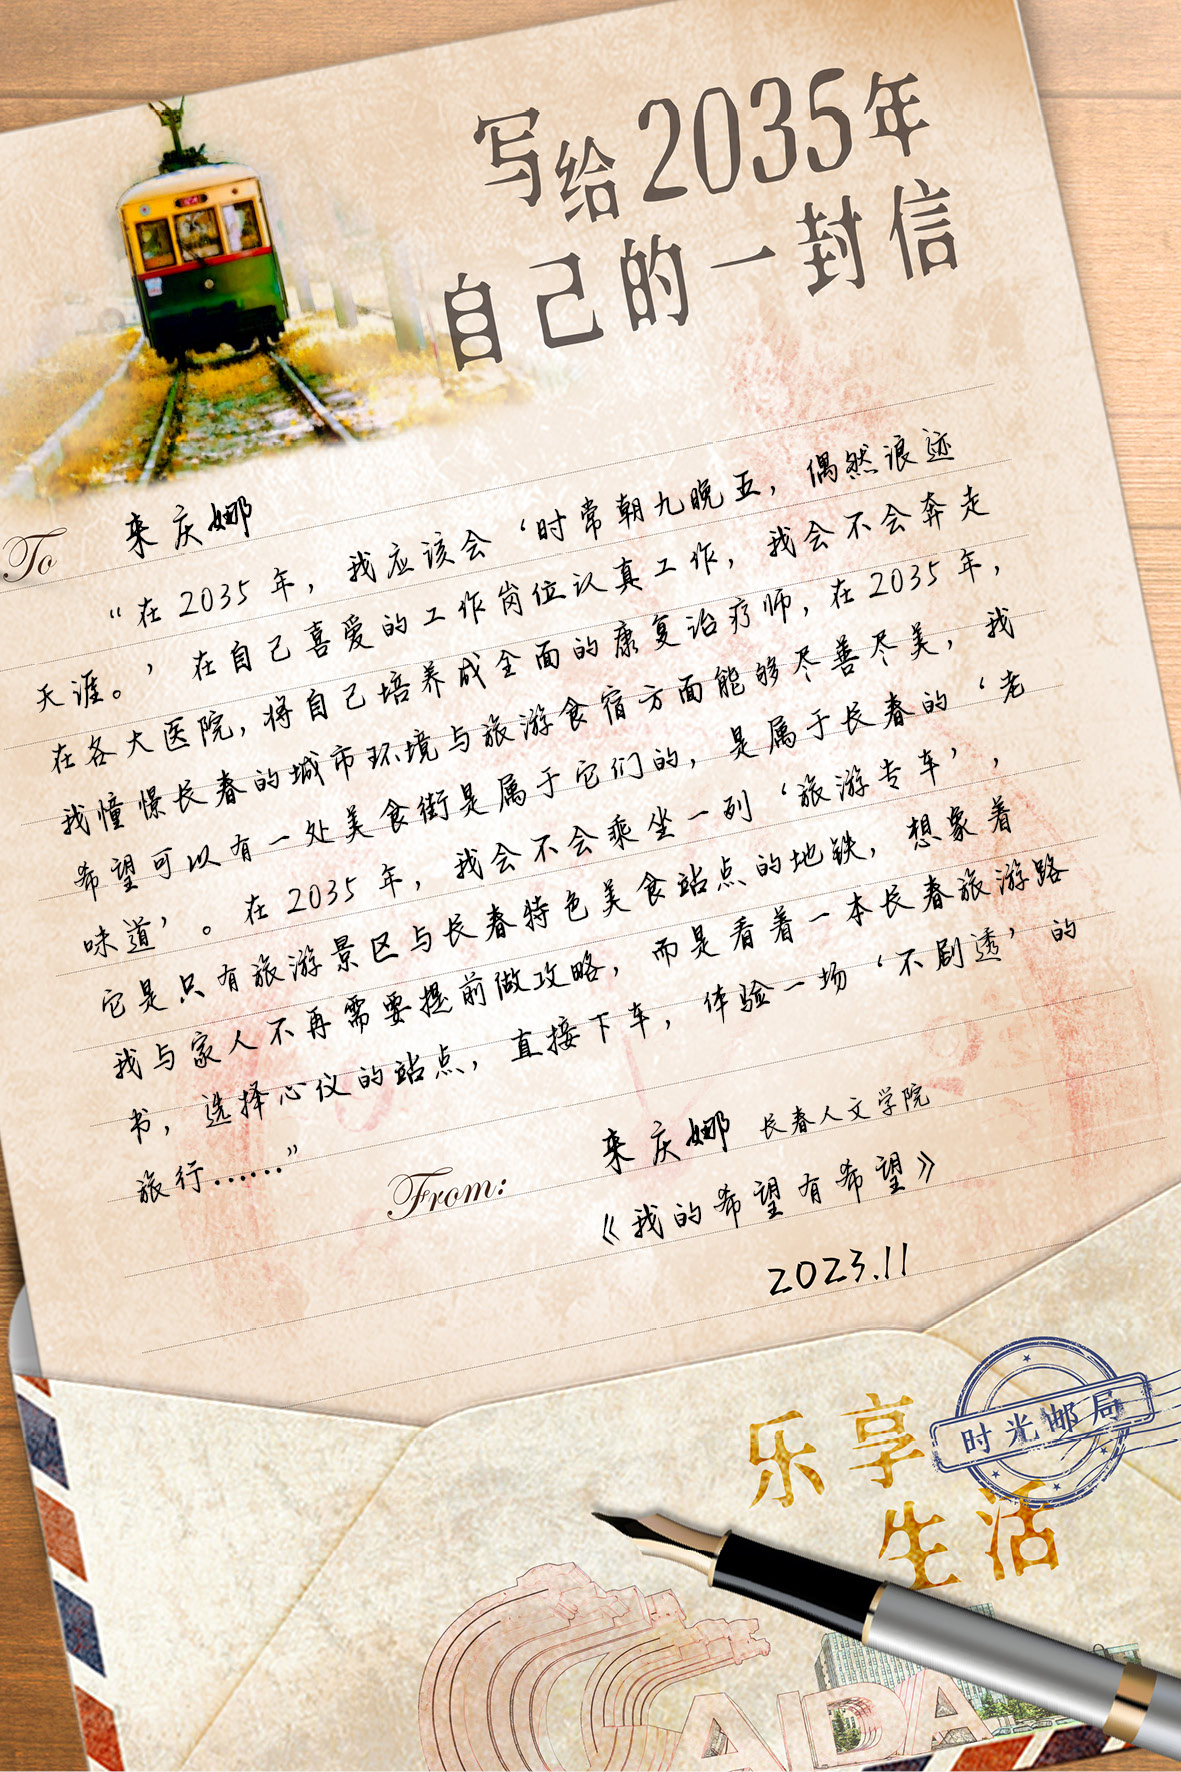 写给2035年
自己的一封信
To 来庆娜
“在 2035 年，我应该会‘时常朝九晚五，偶然浪迹
天涯。’在自己喜爱的工作岗位认真工作，我会不会奔走
在各大医院，将自己培养成全面的康复治疗师，在2035年，
我憧憬长春的城市环境与旅游食宿方面能够尽善尽美，我
希望可以有一处美食街是属于它们的，是属于长春的‘老
味道’。在 2035 年，我会不会乘坐一列‘旅游专车’，
它是只有旅游景区与长春特色美食站点的地铁，想象着
我与家人不再需要提前做攻略，而是看着一本长春旅游路
书，选择心仪的站点，直接下车，体验一场‘不剧透’的
旅行……”
From: 来庆娜 长春人文学院
《我的希望有希望》
2023.11
时光邮局
乐享
生活